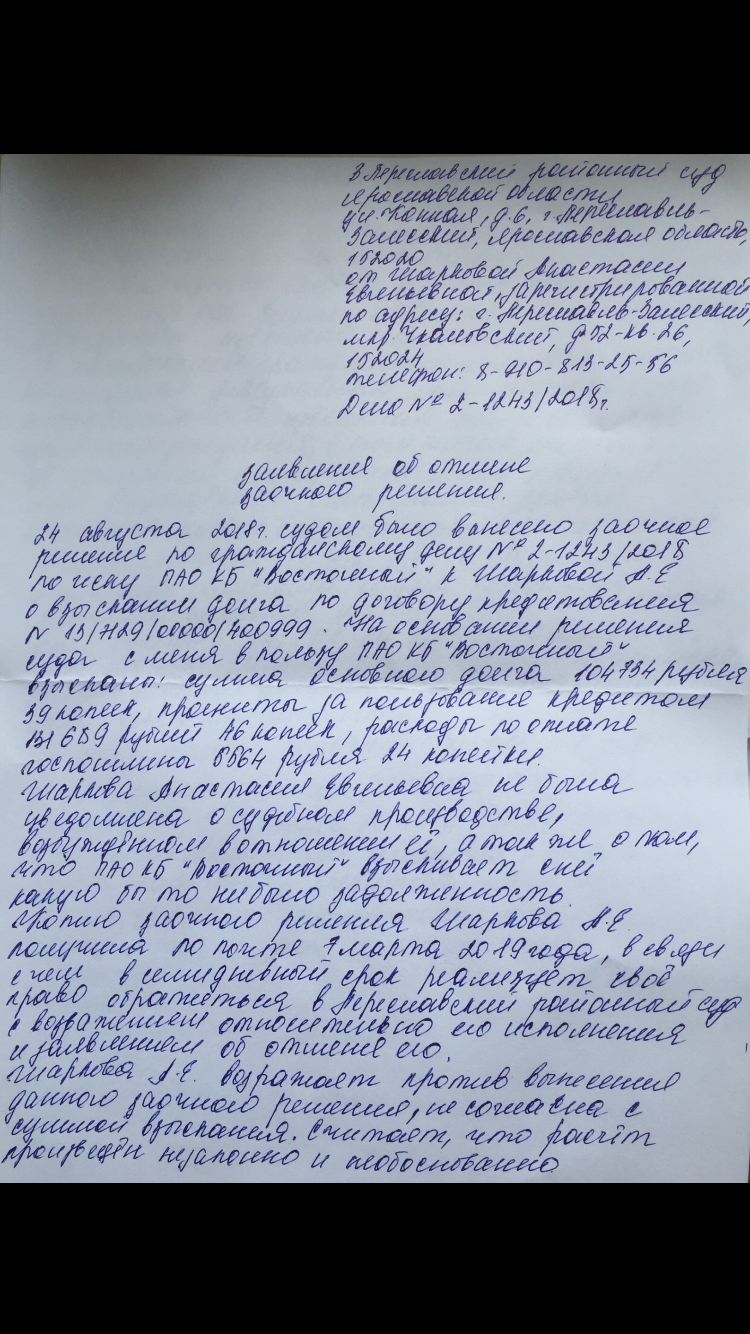 В Переславский районный суд
Ярославской области
ул. Конная, д.6, г. Переславль-
Залесский, Ярославская область,
152020
от Шарковой Анастасии
Евгеньевной, зарегистрированной
по адресу: г. Переславль-Залесский,
мкр. Чкаловский, д.52-кв.26,
152024
телефон: 8-910-813-25-56
Дело № 2-1243/2018г.
заявление об отмене
заочного решения.
24 августа 2018г. судом было вынесено заочное
решение по гражданскому делу № 2-1243/2018
по иску ПАО КБ "Восточный" к Шарковой А.Е
о взыскании долга по договору кредитования
N 13/7129/00000/400999. На основании решения
суда с меня в пользу ПАО КБ "Восточный"
взысканы: сумма основного долга 104734 рубля
39 копеек, проценты за пользование кредитом
131 689 рублей 46 копеек, расходы по оплате
госпошлины 5564 рубля 24 копейки.
Шаркова Анастасия Евгеньевна не была
уведомлена о судебном производстве,
возбуждённом в отношении её, а так же о том,
что ПАО КБ "Восточный" взыскивает с неё
какую бы то ни было задолженность.
Копию заочного решения Шаркова А.Е.
получила по почте 7 марта 2019 года, в связи
с чем в семидневный срок реализует своё
право обратиться в Переславский районный суд
с возражением относительно его исполнения
и заявлением об отмене его.
Шаркова А.Е. возражает против вынесения
данного заочного решения, не согласна с
суммой взыскания. Считает, что расчёт
произведён незаконно и необоснованно